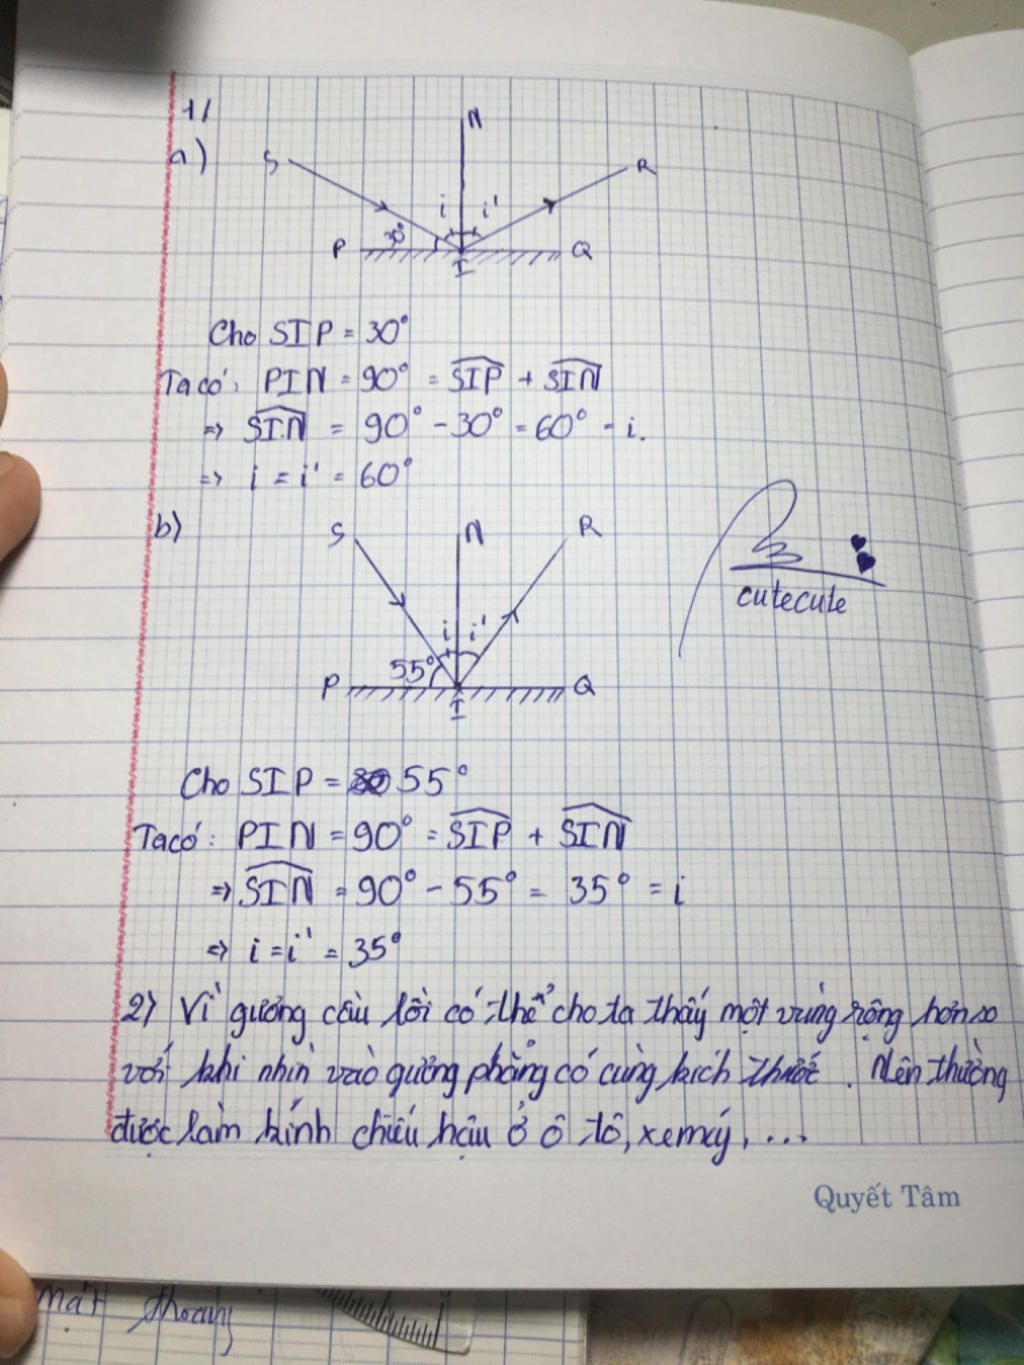 1/
a)
S N R
i i'
30°
P I Q
Cho SIP = 30°
Ta có: PIN = 90° = SIP + SIN
=> SIN = 90° - 30° = 60° = i.
=> i = i' = 60°
b)
S N R
i i'
55°
P I Q
cutecute
Cho SIP = 55°
Ta có: PIN = 90° = SIP + SIN
=> SIN = 90° - 55° = 35° = i
=> i = i' = 35°
2) Vì gương cầu lồi có thể cho ta thấy một vùng rộng hơn so
với khi nhìn vào gương phẳng có cùng kích thước. Nên thường
được làm kính chiếu hậu ở ô tô, xe máy, ...
Quyết Tâm
mặt thoáng